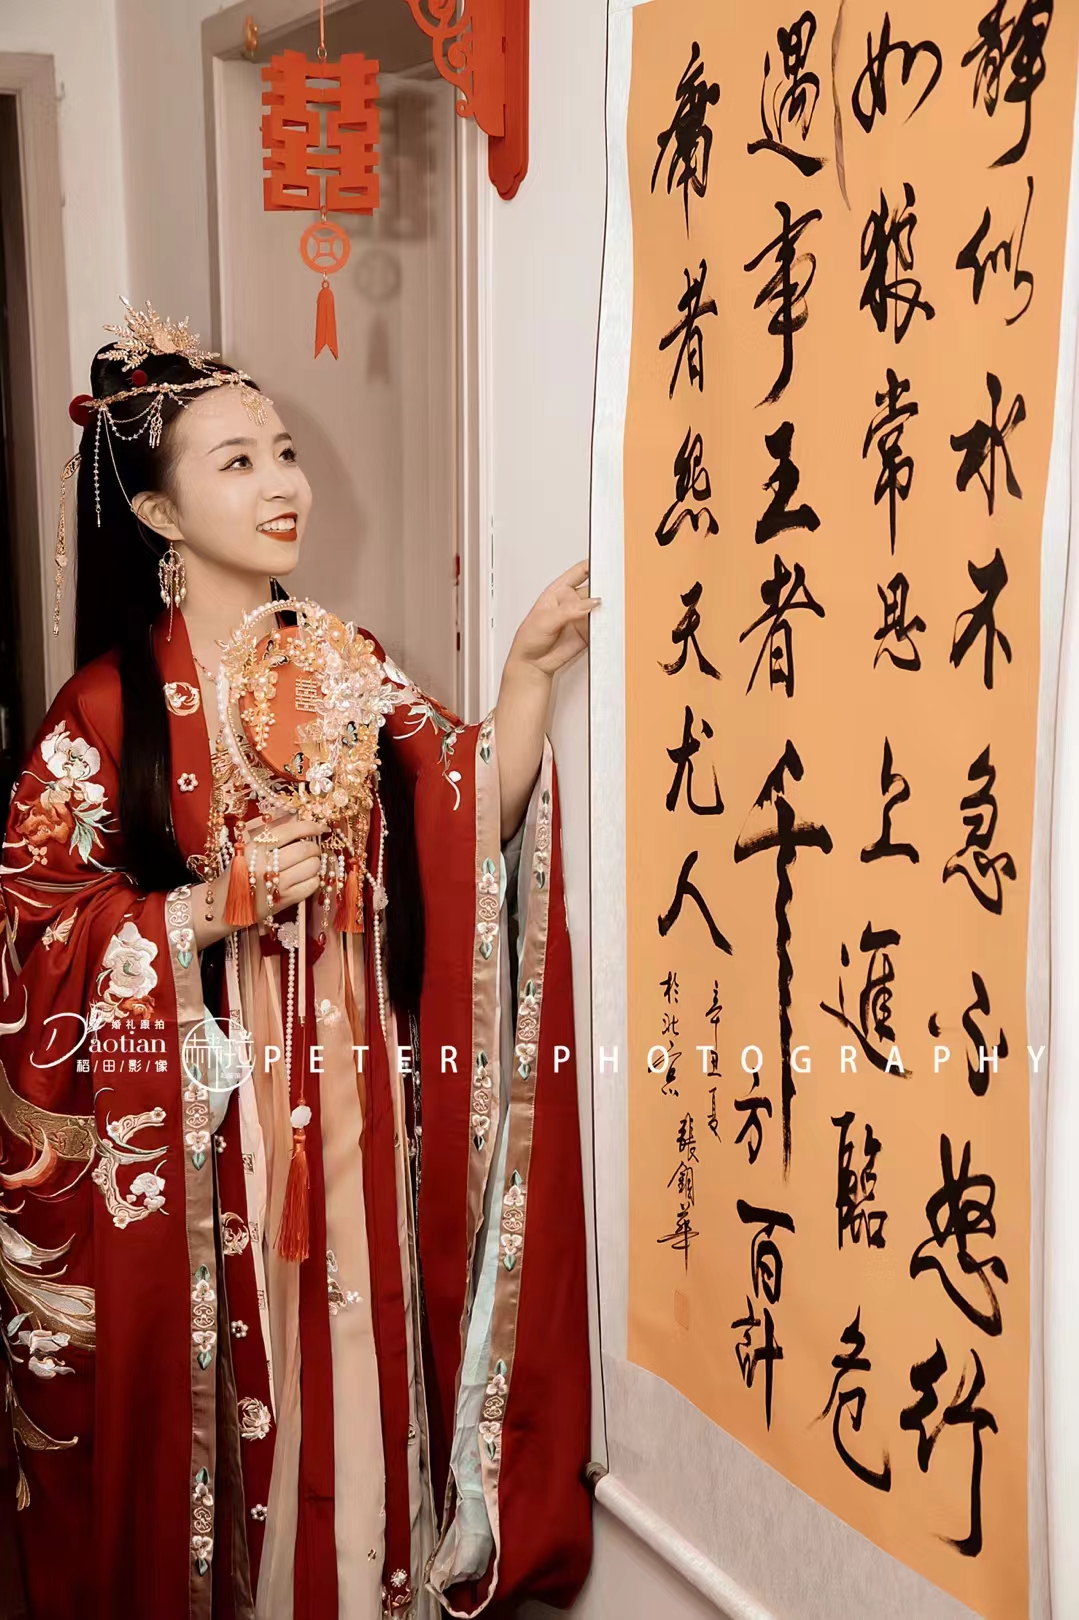 静似水不急不怒行
如狼常思上进临危
遇事王者千方百計
庸者怨天尤人
辛丑夏
於北京 張錦華
囍
婚礼跟拍
Daotian
稻/田/影/像
PETER PHOTOGRAPHY